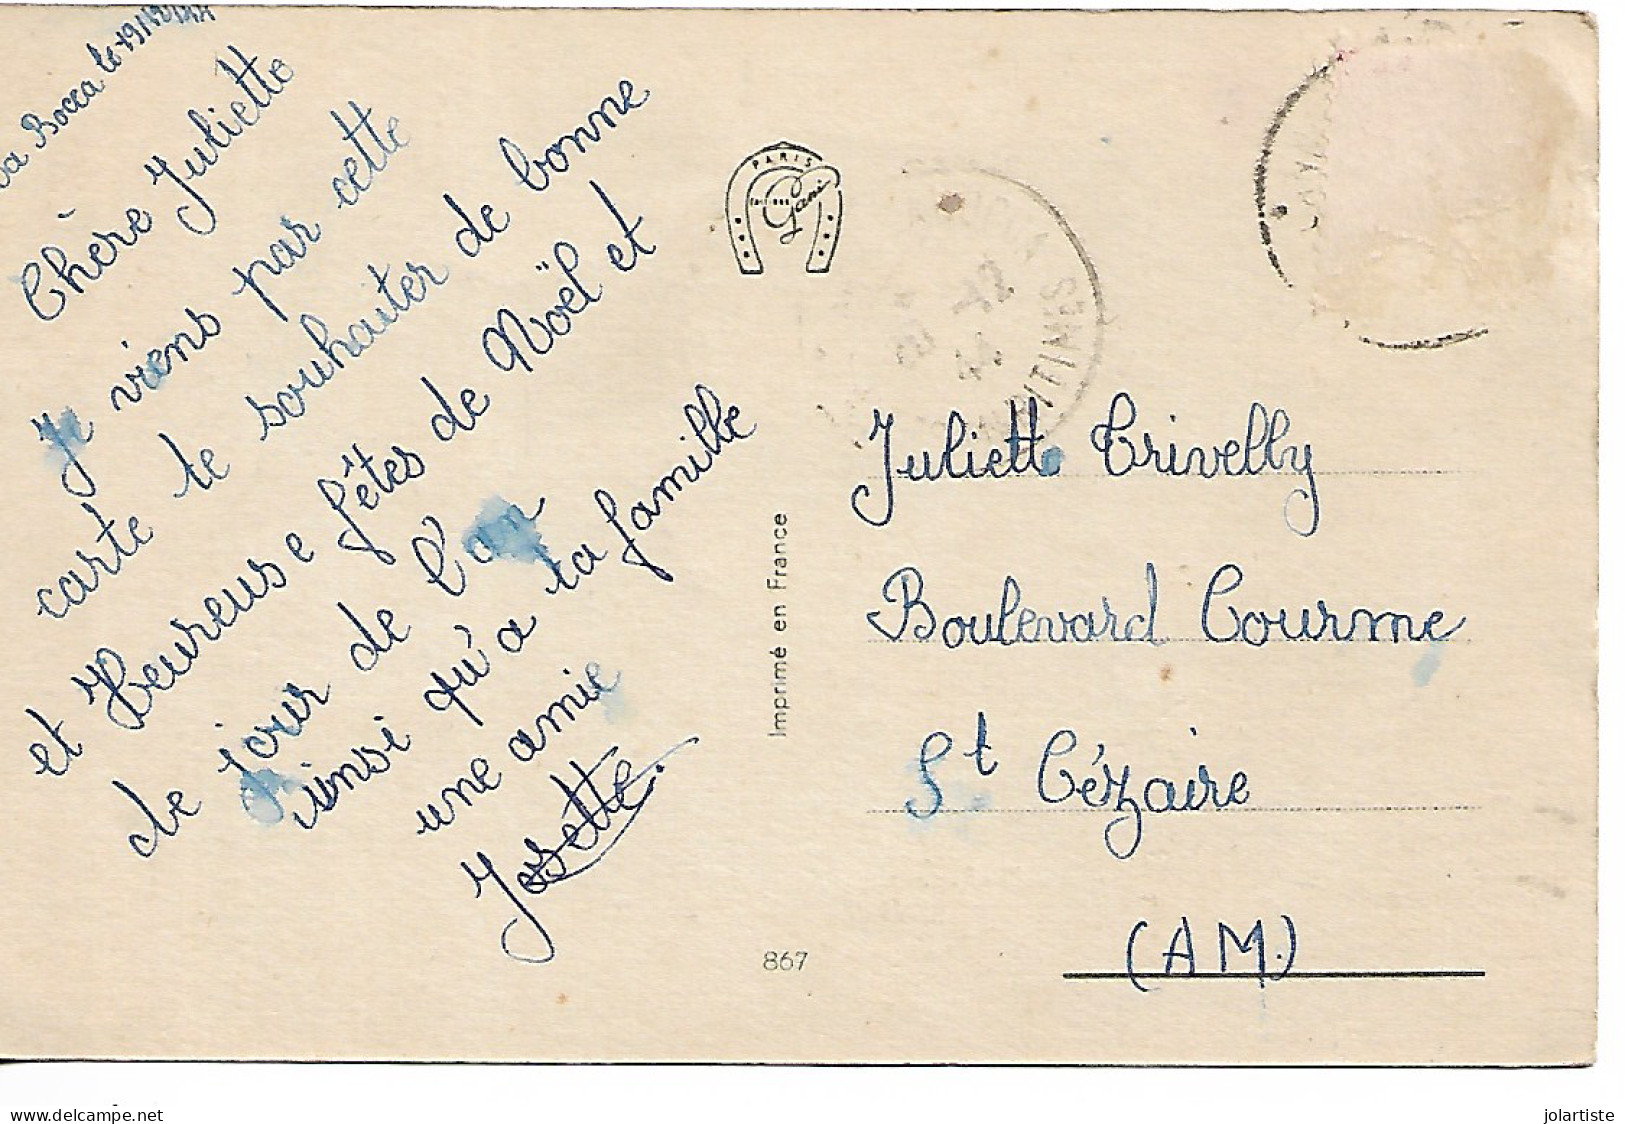 Bocca le
Chère Juliette
Je viens par cette
carte te souhaiter de bonne
et Heureuse fêtes de Noël et
de jour de l'an
ainsi qu'a ta famille
une amie
Josette.
PARIS
EDITIONS
Gani
Imprimé en France
867
MARITIMES
Juliette Trivelly
Boulevard Courme
St Cézaire
(AM.)
delcampe.net
jolartiste